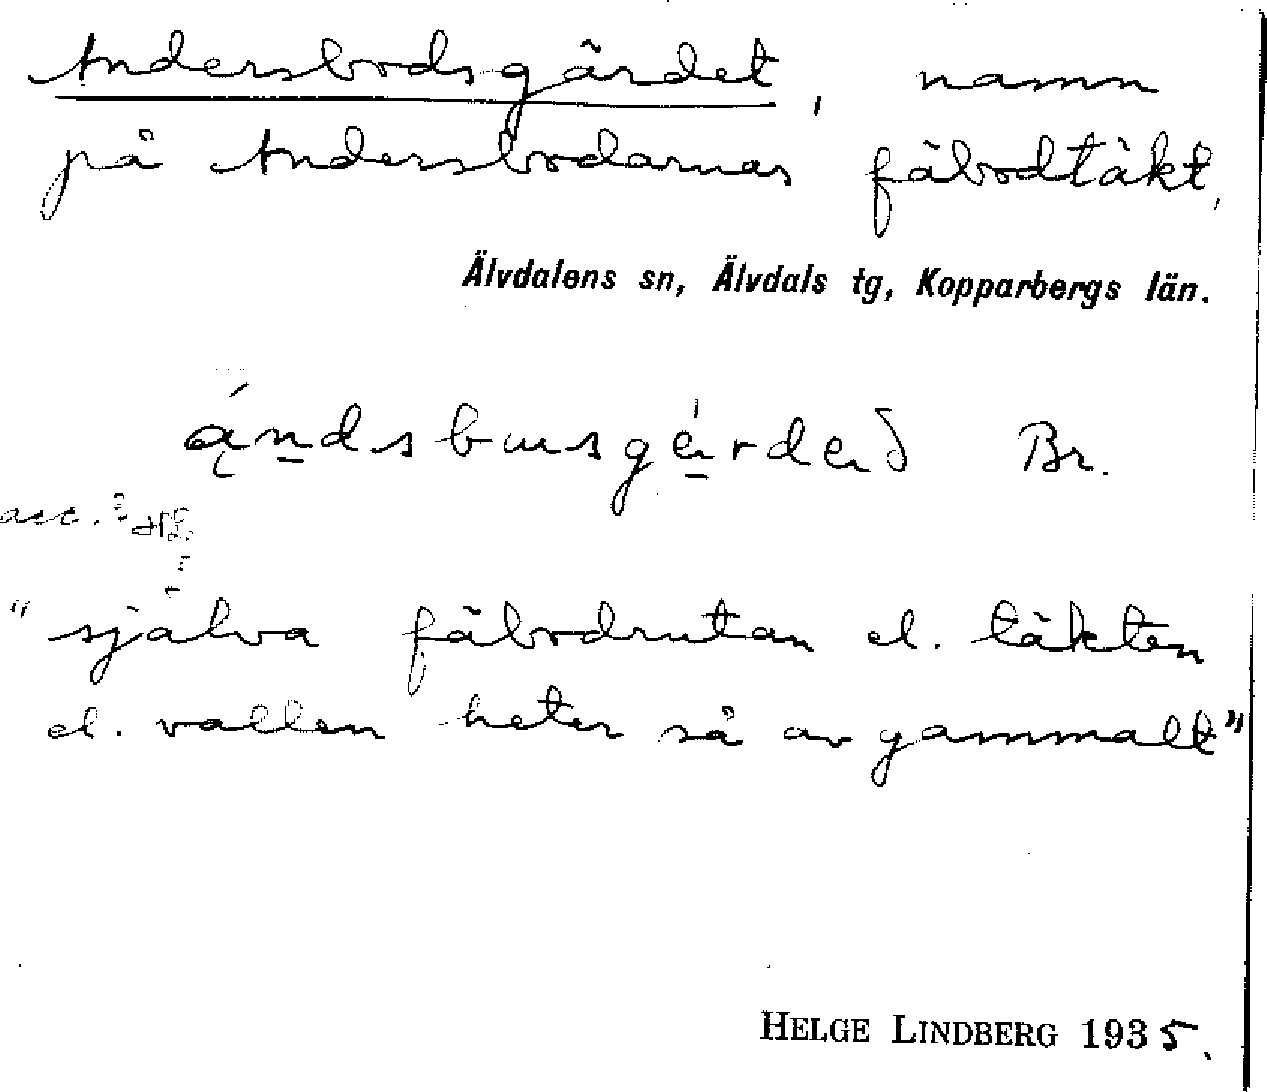 Andersbodsgärdet, namn
på Andersbodarnas fäbodtäkt,
Älvdalens sn, Älvdals tg, Kopparbergs län.
ą́ndsbusgérdeð Br.
acc.
"själva fäbodrutan el. täkten
el. vallen heter så av gammalt"
HELGE LINDBERG 1935.